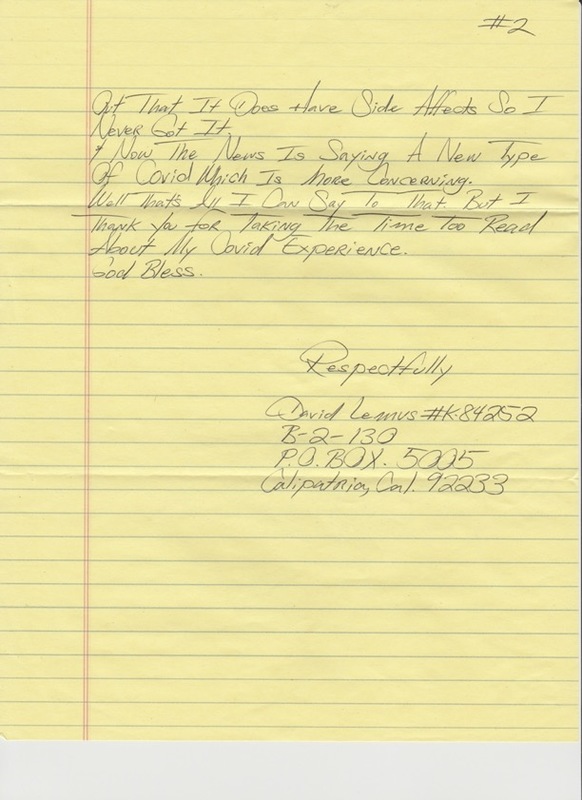 #2
Out That It Does Have Side Affects So I
Never Got It.
* Now The News Is Saying A New Type
Of Covid Which Is More Concerning.
Well That's All I Can Say To That. But I
Thank You for Taking The Time Too Read
About My Covid Experience.
God Bless.
Respectfully
David Lemus #K-84252
B-2-130
P.O. BOX. 5005
Calipatria, Cal. 92233